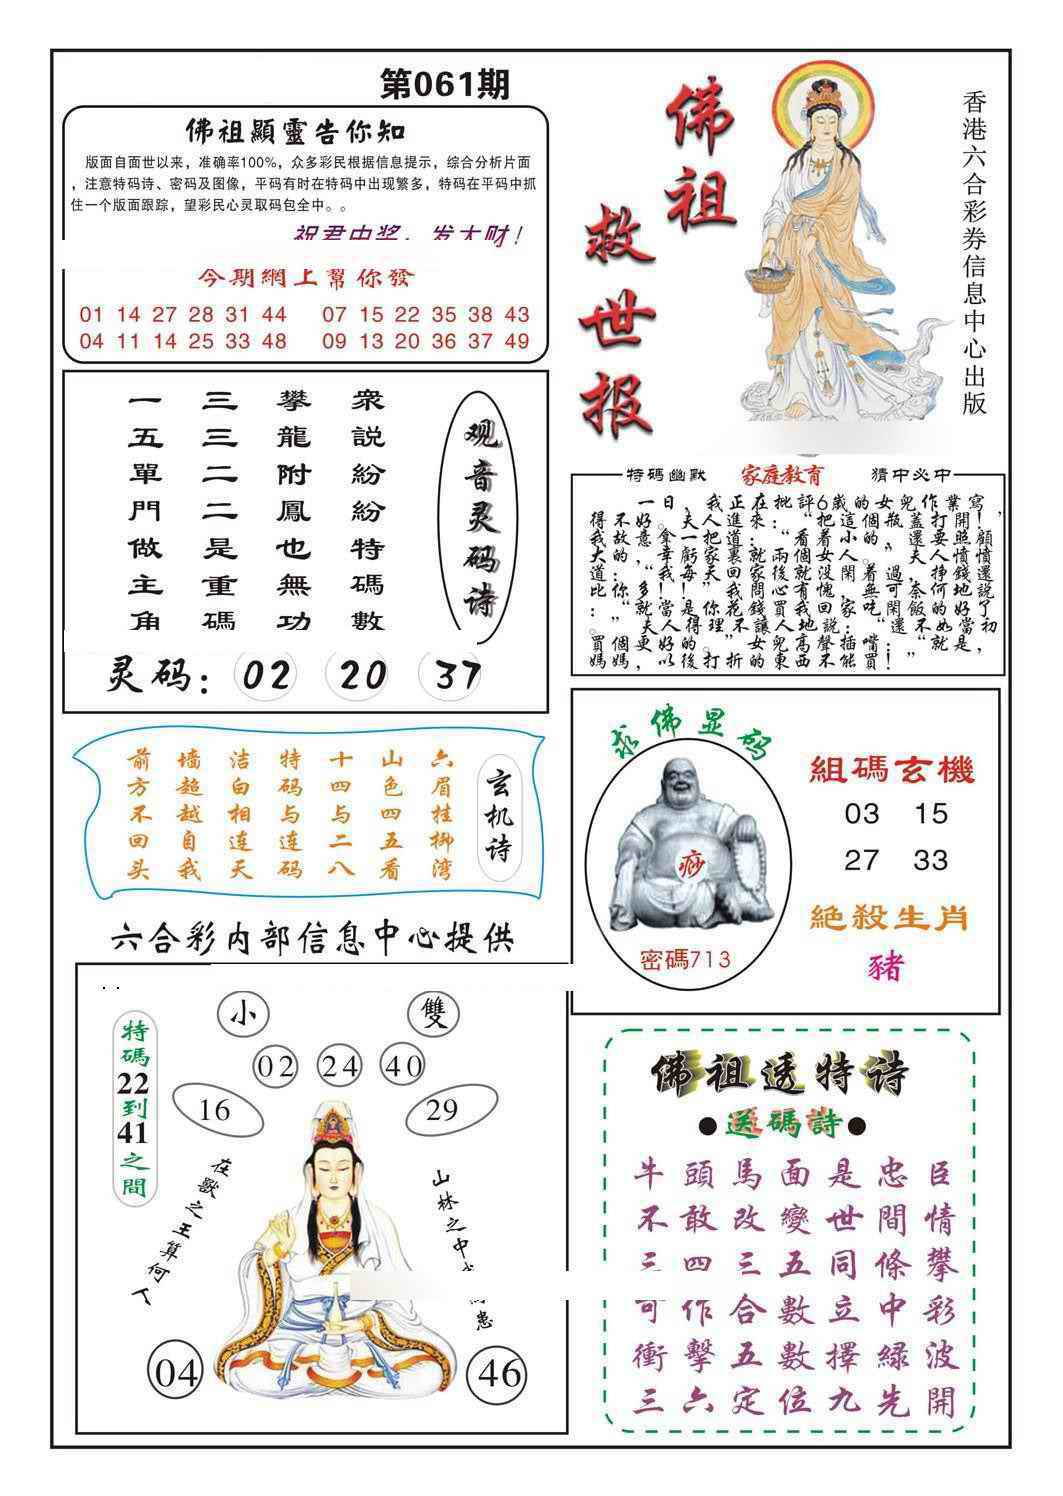 第061期
佛祖顯靈告你知
版面自面世以来，准确率100%，众多彩民根据信息提示，综合分析片面
，注意特码诗、密码及图像，平码有时在特码中出现繁多，特码在平码中抓
住一个版面跟踪，望彩民心灵取码包全中。。
祝君中奖，发大财！
今期網上幫你發
01 14 27 28 31 44 07 15 22 35 38 43
04 11 14 25 33 48 09 13 20 36 37 49
佛祖
救世报
香港六合彩券信息中心出版
观音灵码诗
衆說紛紛特碼數
攀龍附鳳也無功
三三二二是重碼
一五單門做主角
灵码：02 20 37
特碼幽默 家庭教育 猜中必中
一日，我正在批評6歲的女兒作業寫
得不好。夫人進來：“把這個瓶蓋打開！
玄机诗
六眉挂柳湾
山色四五看
十四与二八
特码与连码
洁白相连天
墙超越自我
前方不回头
求佛显码
痧
密碼713
組碼玄機
03 15
27 33
絕殺生肖
豬
六合彩内部信息中心提供
特碼22到41之間
小 雙
02 24 40
16 29
在獸之王算何人
山林之中
患
04 46
佛祖透特诗
●送碼詩●
牛頭馬面是忠臣
不敢改變世間情
三四三五同條攀
可作合數立中彩
衝擊五數擇緑波
三六定位九先開